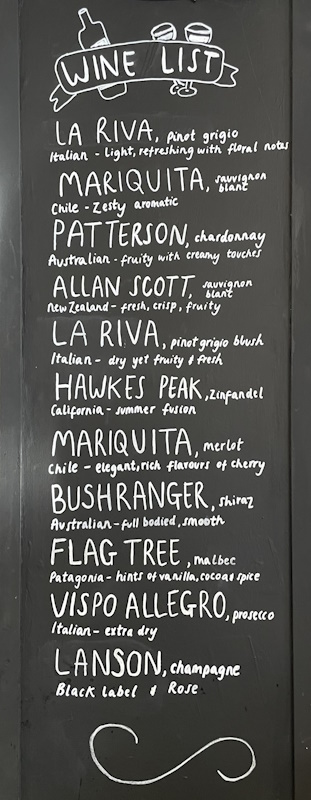 WINE LIST
LA RIVA, pinot grigio
Italian - Light, refreshing with floral notes
MARIQUITA, sauvignon blanc
Chile - Zesty aromatic
PATTERSON, chardonnay
Australian - fruity with creamy touches
ALLAN SCOTT, sauvignon blanc
new Zealand - fresh, crisp, fruity
LA RIVA, pinot grigio blush
Italian - dry yet fruity & fresh
HAWKES PEAK, Zinfandel
California - summer fusion
MARIQUITA, merlot
Chile - elegant, rich flavours of cherry
BUSHRANGER, shiraz
Australian - full bodied, smooth
FLAG TREE, malbec
Patagonia - hints of vanilla, cocoa & spice
VISPO ALLEGRO, prosecco
Italian - extra dry
LANSON, champagne
Black Label & Rose